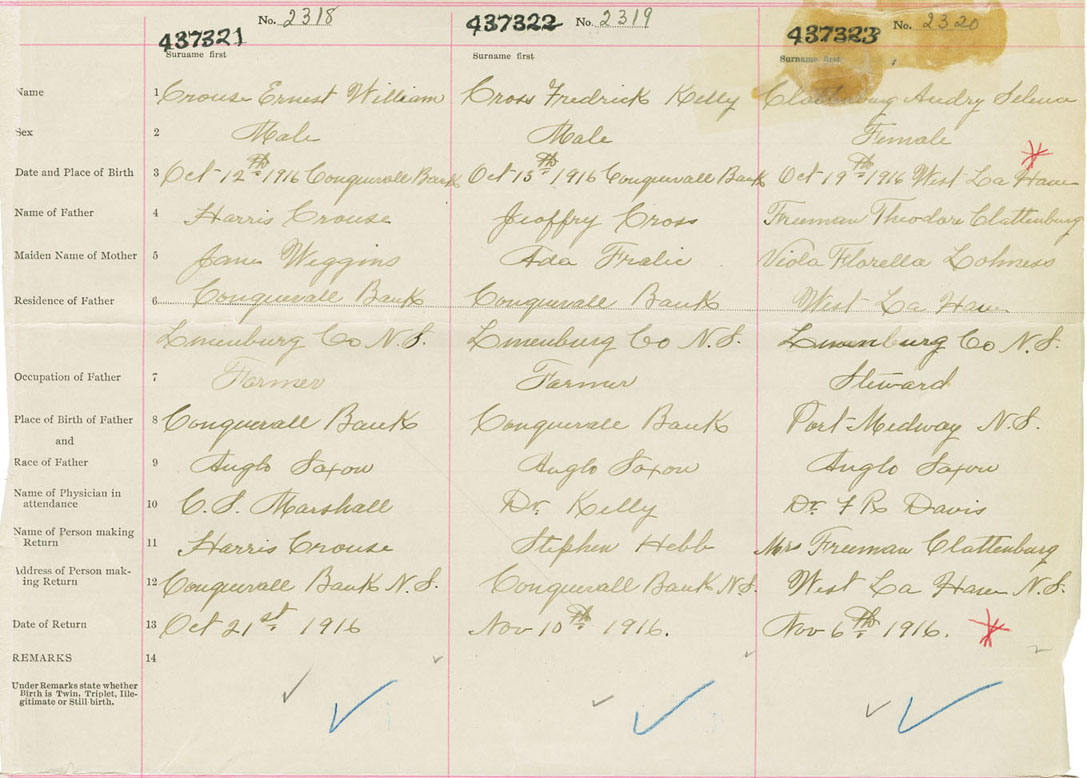 No. 2318 437322 No. 2319 No. 2320
437321 437323
Surname first Surname first Surname first
Name 1 Crouse Ernest William Cross Fredrick Kelly Clattenburg Audry Selena
Sex 2 Male Male Female
Date and Place of Birth 3 Oct 12th 1916 Conquerall Bank Oct 15th 1916 Conquerall Bank Oct 19th 1916 West La Have
Name of Father 4 Harris Crouse Jeoffry Cross Freeman Theodore Clattenburg
Maiden Name of Mother 5 Jane Wiggins Ada Fralic Viola Florella Lohness
Residence of Father 6 Conquerall Bank Conquerall Bank West La Have
Lunenburg Co N.S. Lunenburg Co N.S. Lunenburg Co N.S.
Occupation of Father 7 Farmer Farmer Steward
Place of Birth of Father 8 Conquerall Bank Conquerall Bank Port Medway N.S.
and
Race of Father 9 Anglo Saxon Anglo Saxon Anglo Saxon
Name of Physician in
attendance 10 C. S. Marshall Dr. Kelly Dr. F R Davis
Name of Person making
Return 11 Harris Crouse Stephen Hebb Mrs Freeman Clattenburg
Address of Person mak-
ing Return 12 Conquerall Bank N.S. Conquerall Bank N.S. West La Have N.S.
Date of Return 13 Oct 21st 1916 Nov 10th 1916. Nov 6th 1916.
REMARKS 14
Under Remarks state whether
Birth is Twin, Triplet, Ille-
gitimate or Still-birth.